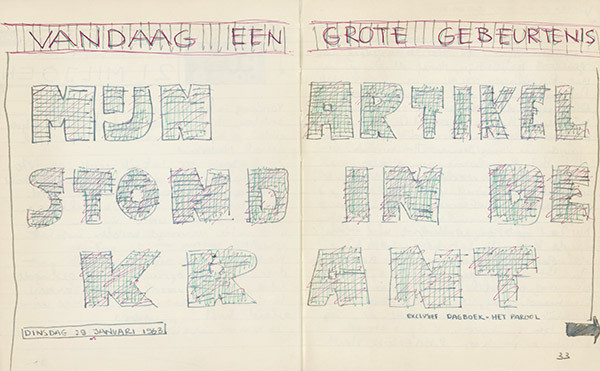 VANDAAG EEN GROTE GEBEURTENIS
MIJN ARTIKEL
STOND IN DE
KRANT
DINSDAG 29 JANUARI 1963
DAGBOEK - HET PAROOL
33